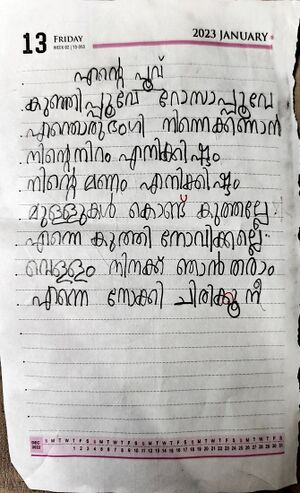 13 FRIDAY
WEEK 02 | 13-352
2023 JANUARY
എന്റെ പൂവ്
കുഞ്ഞിപ്പൂവേ റോസാപ്പൂവേ
എന്തൊരു ഭംഗി നിന്നെക്കാണാൻ
നിന്റെ നിറം എനിക്കിഷ്ടം
നിന്റെ മണം എനിക്കിഷ്ടം
മുള്ളുകൾ കൊണ്ട് കുത്തല്ലേ
എന്നെ കുത്തി നോവിക്കല്ലെ
വെള്ളം നിനക്ക് ഞാൻ തരാം
എന്നെ നോക്കി ചിരിക്കൂ നീ
DEC 2022 S M T W T F S S M T W T F S S M T W T F S S M T W T F S S M T W T F S
1 2 3 4 5 6 7 8 9 10 11 12 13 14 15 16 17 18 19 20 21 22 23 24 25 26 27 28 29 30 31